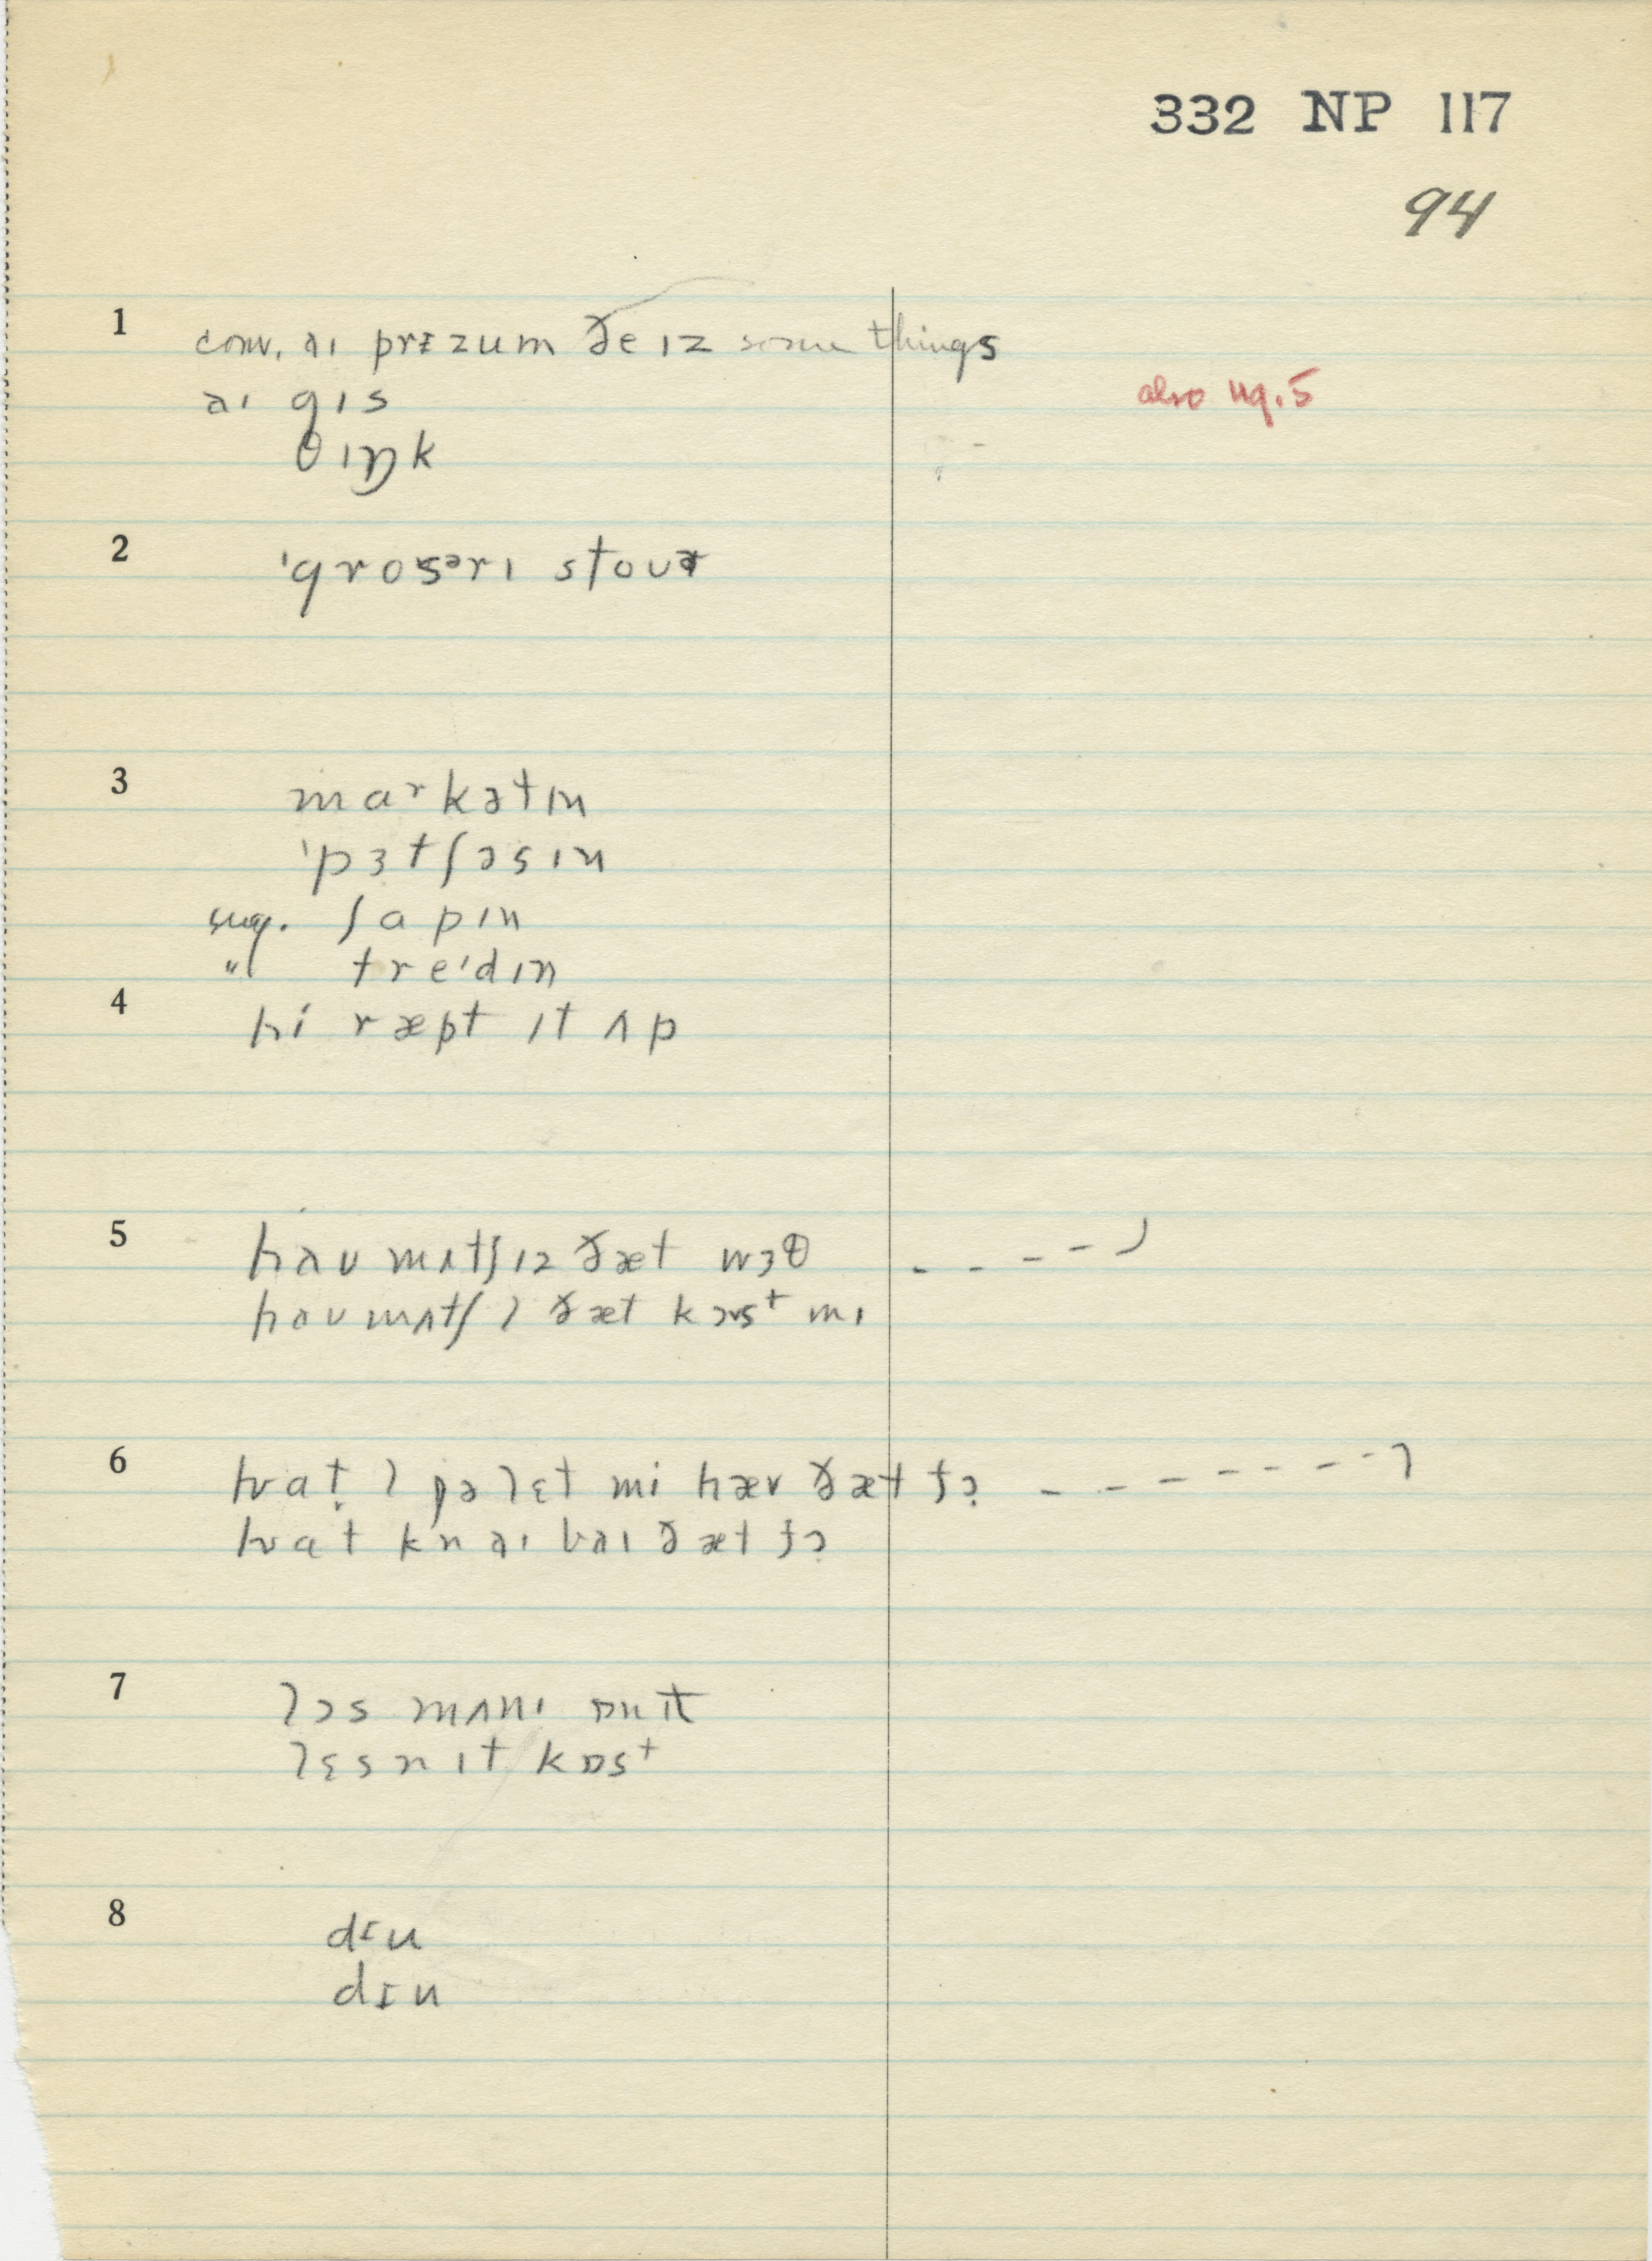 332 NP 117
94
1 conv. aɪ prɪzum ðe ɪz some things
aɪ gɪs
also 49.5
θɪŋk
2 ˈgrosᵊrɪ stoʊɚ
3 marˑkətɪn
ˈpɜtʃəsɪn
sug. ʃapɪn
" treˈdɪn
4 hi ræpt ɪt ʌp
5 haʊ mʌtʃ ɪz ðæt wɜθ - - - - ɔ
haʊ mʌtʃ l ðæt kɔst mɪ
6 hwat l jə lɛt mi hæv ðæt fɔ - - - - - - - ɔ
hwat kn aɪ baɪ ðæt fɔ
7 lɔs mʌnɪ ɒn ɪt
lɛs n ɪt kɒst
8 dɪu
dɪu